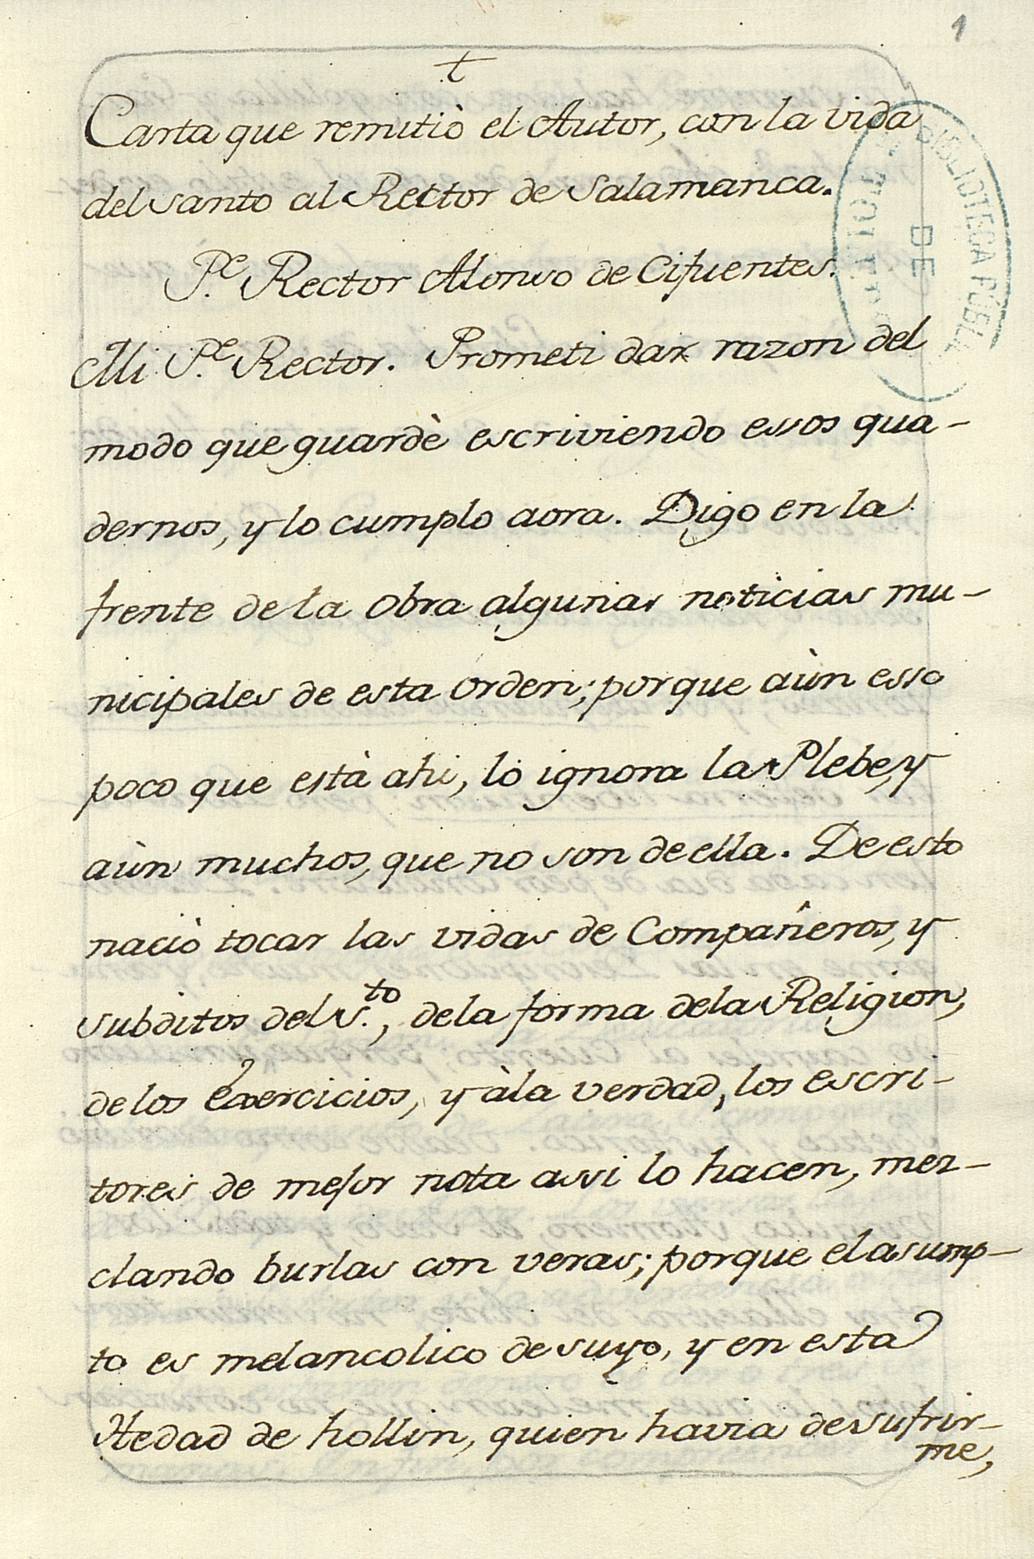 1
t
Carta que remitiò el Autor, con la vida
del santo al Rector de Salamanca.
P.e Rector Alonso de Cifuentes.
Mi P.e Rector. Prometi dar razon del
modo que guardè escriviendo essos qua-
dernos, y lo cumplo aora. Digo en la
frente de la Obra algunas noticias mu-
nicipales de esta Orden; porque aùn esso
poco que està ahi, lo ignora la Plebe, y
aùn muchos, que no son de ella. De esto
naciò tocar las vidas de Compañeros, y
subditos del S.to, de la forma de la Religion,
de los exercicios, y à la verdad, los escri-
tores de mejor nota assi lo hacen, mez-
clando burlas con veras; porque el asump-
to es melancolico de suyo, y en esta
Hedad de hollin, quien havia de sufrir-
me,
BIBLIOTECA PÚBLICA
DE
TOLEDO